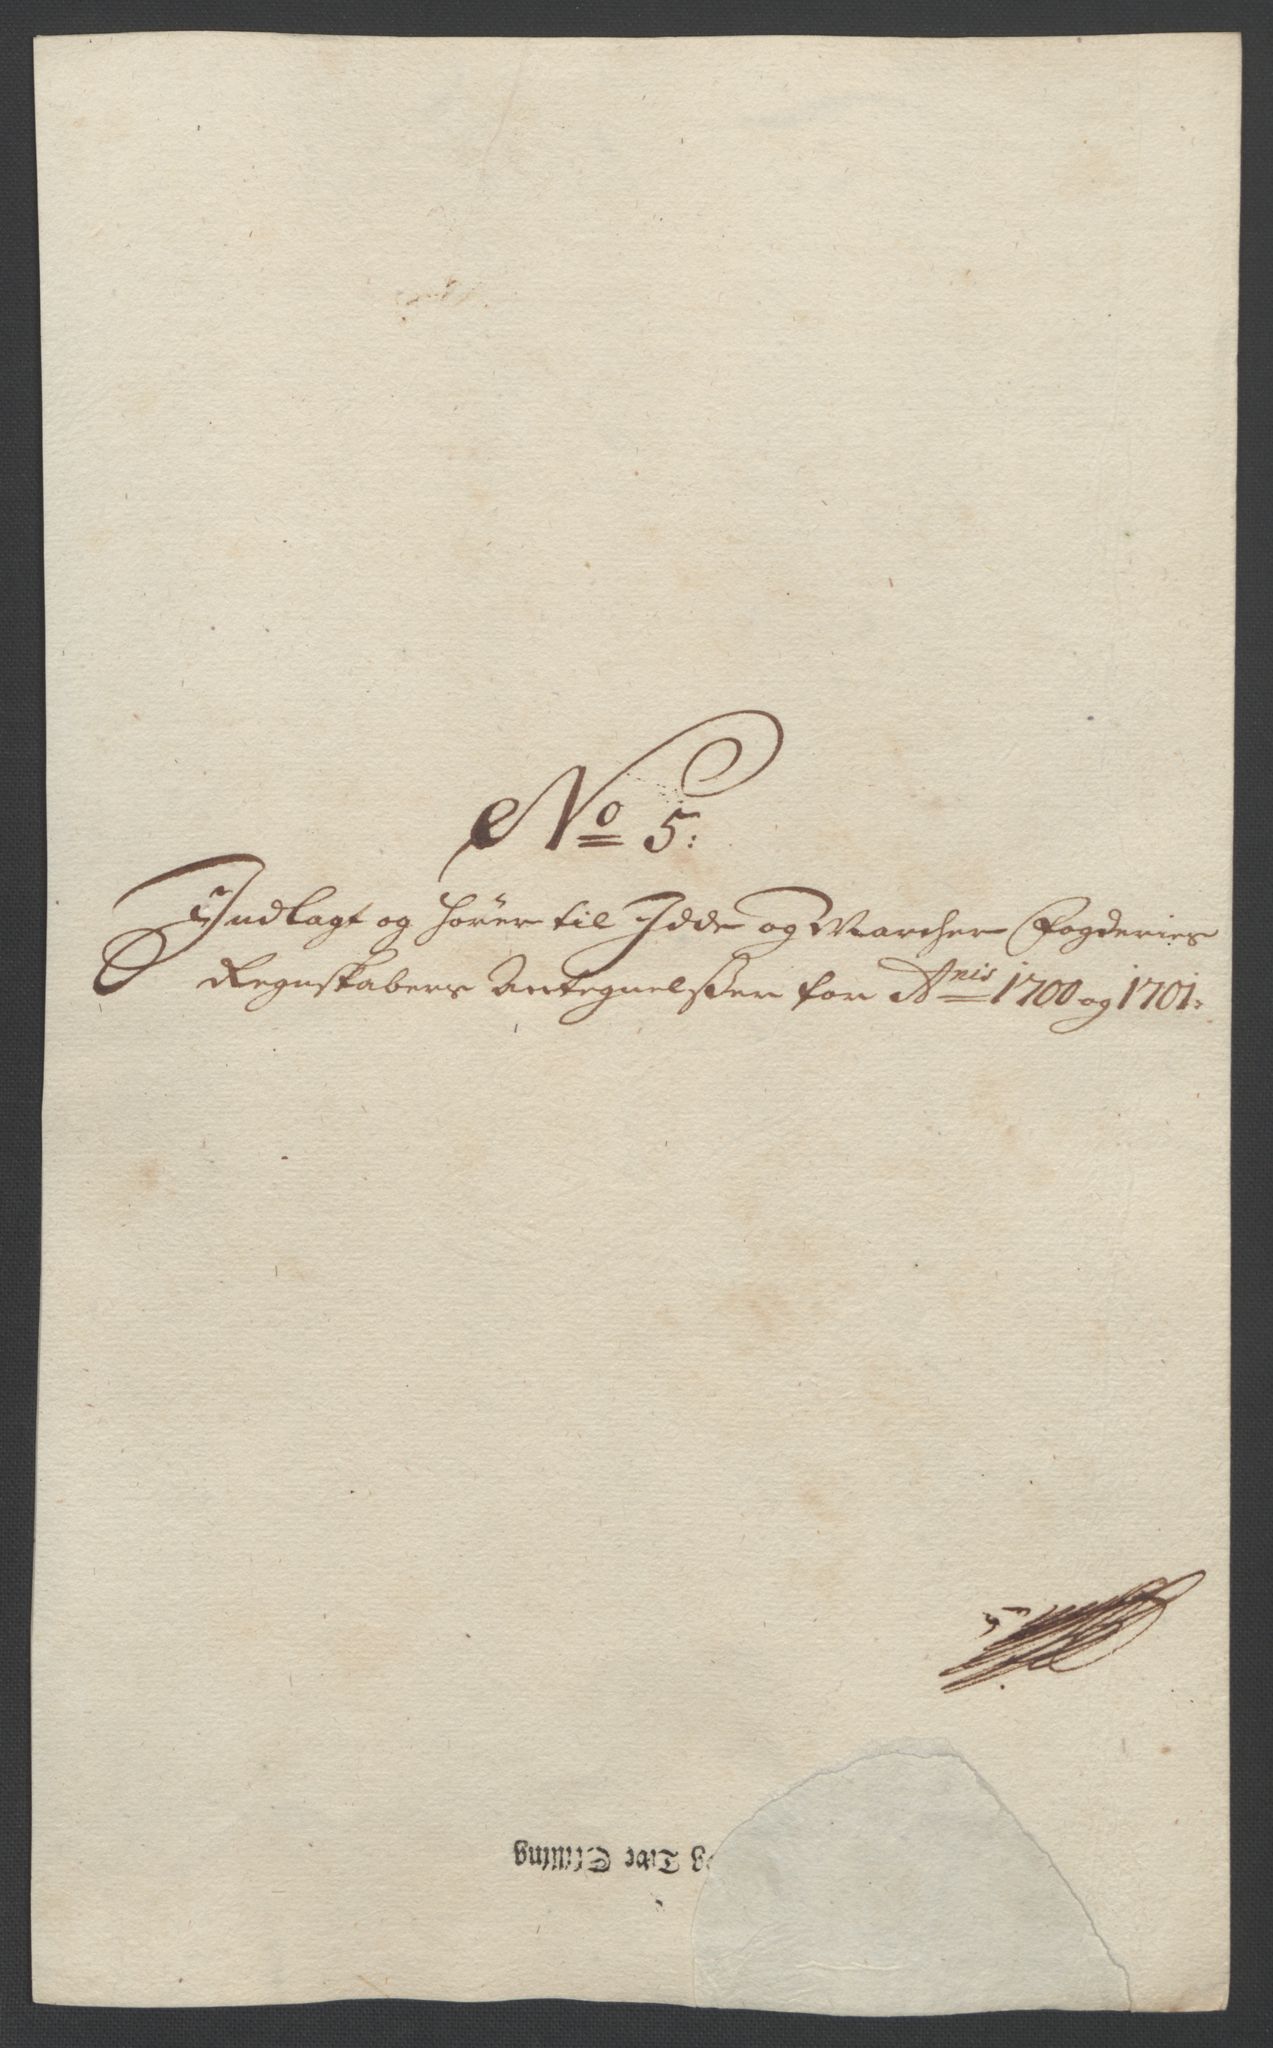 No 5:
Indlagt og hører til Idde og Marcher Fogderies
Regnskabers Antegnelsser for Anis 1700 og 1701:
og Tive Skilling